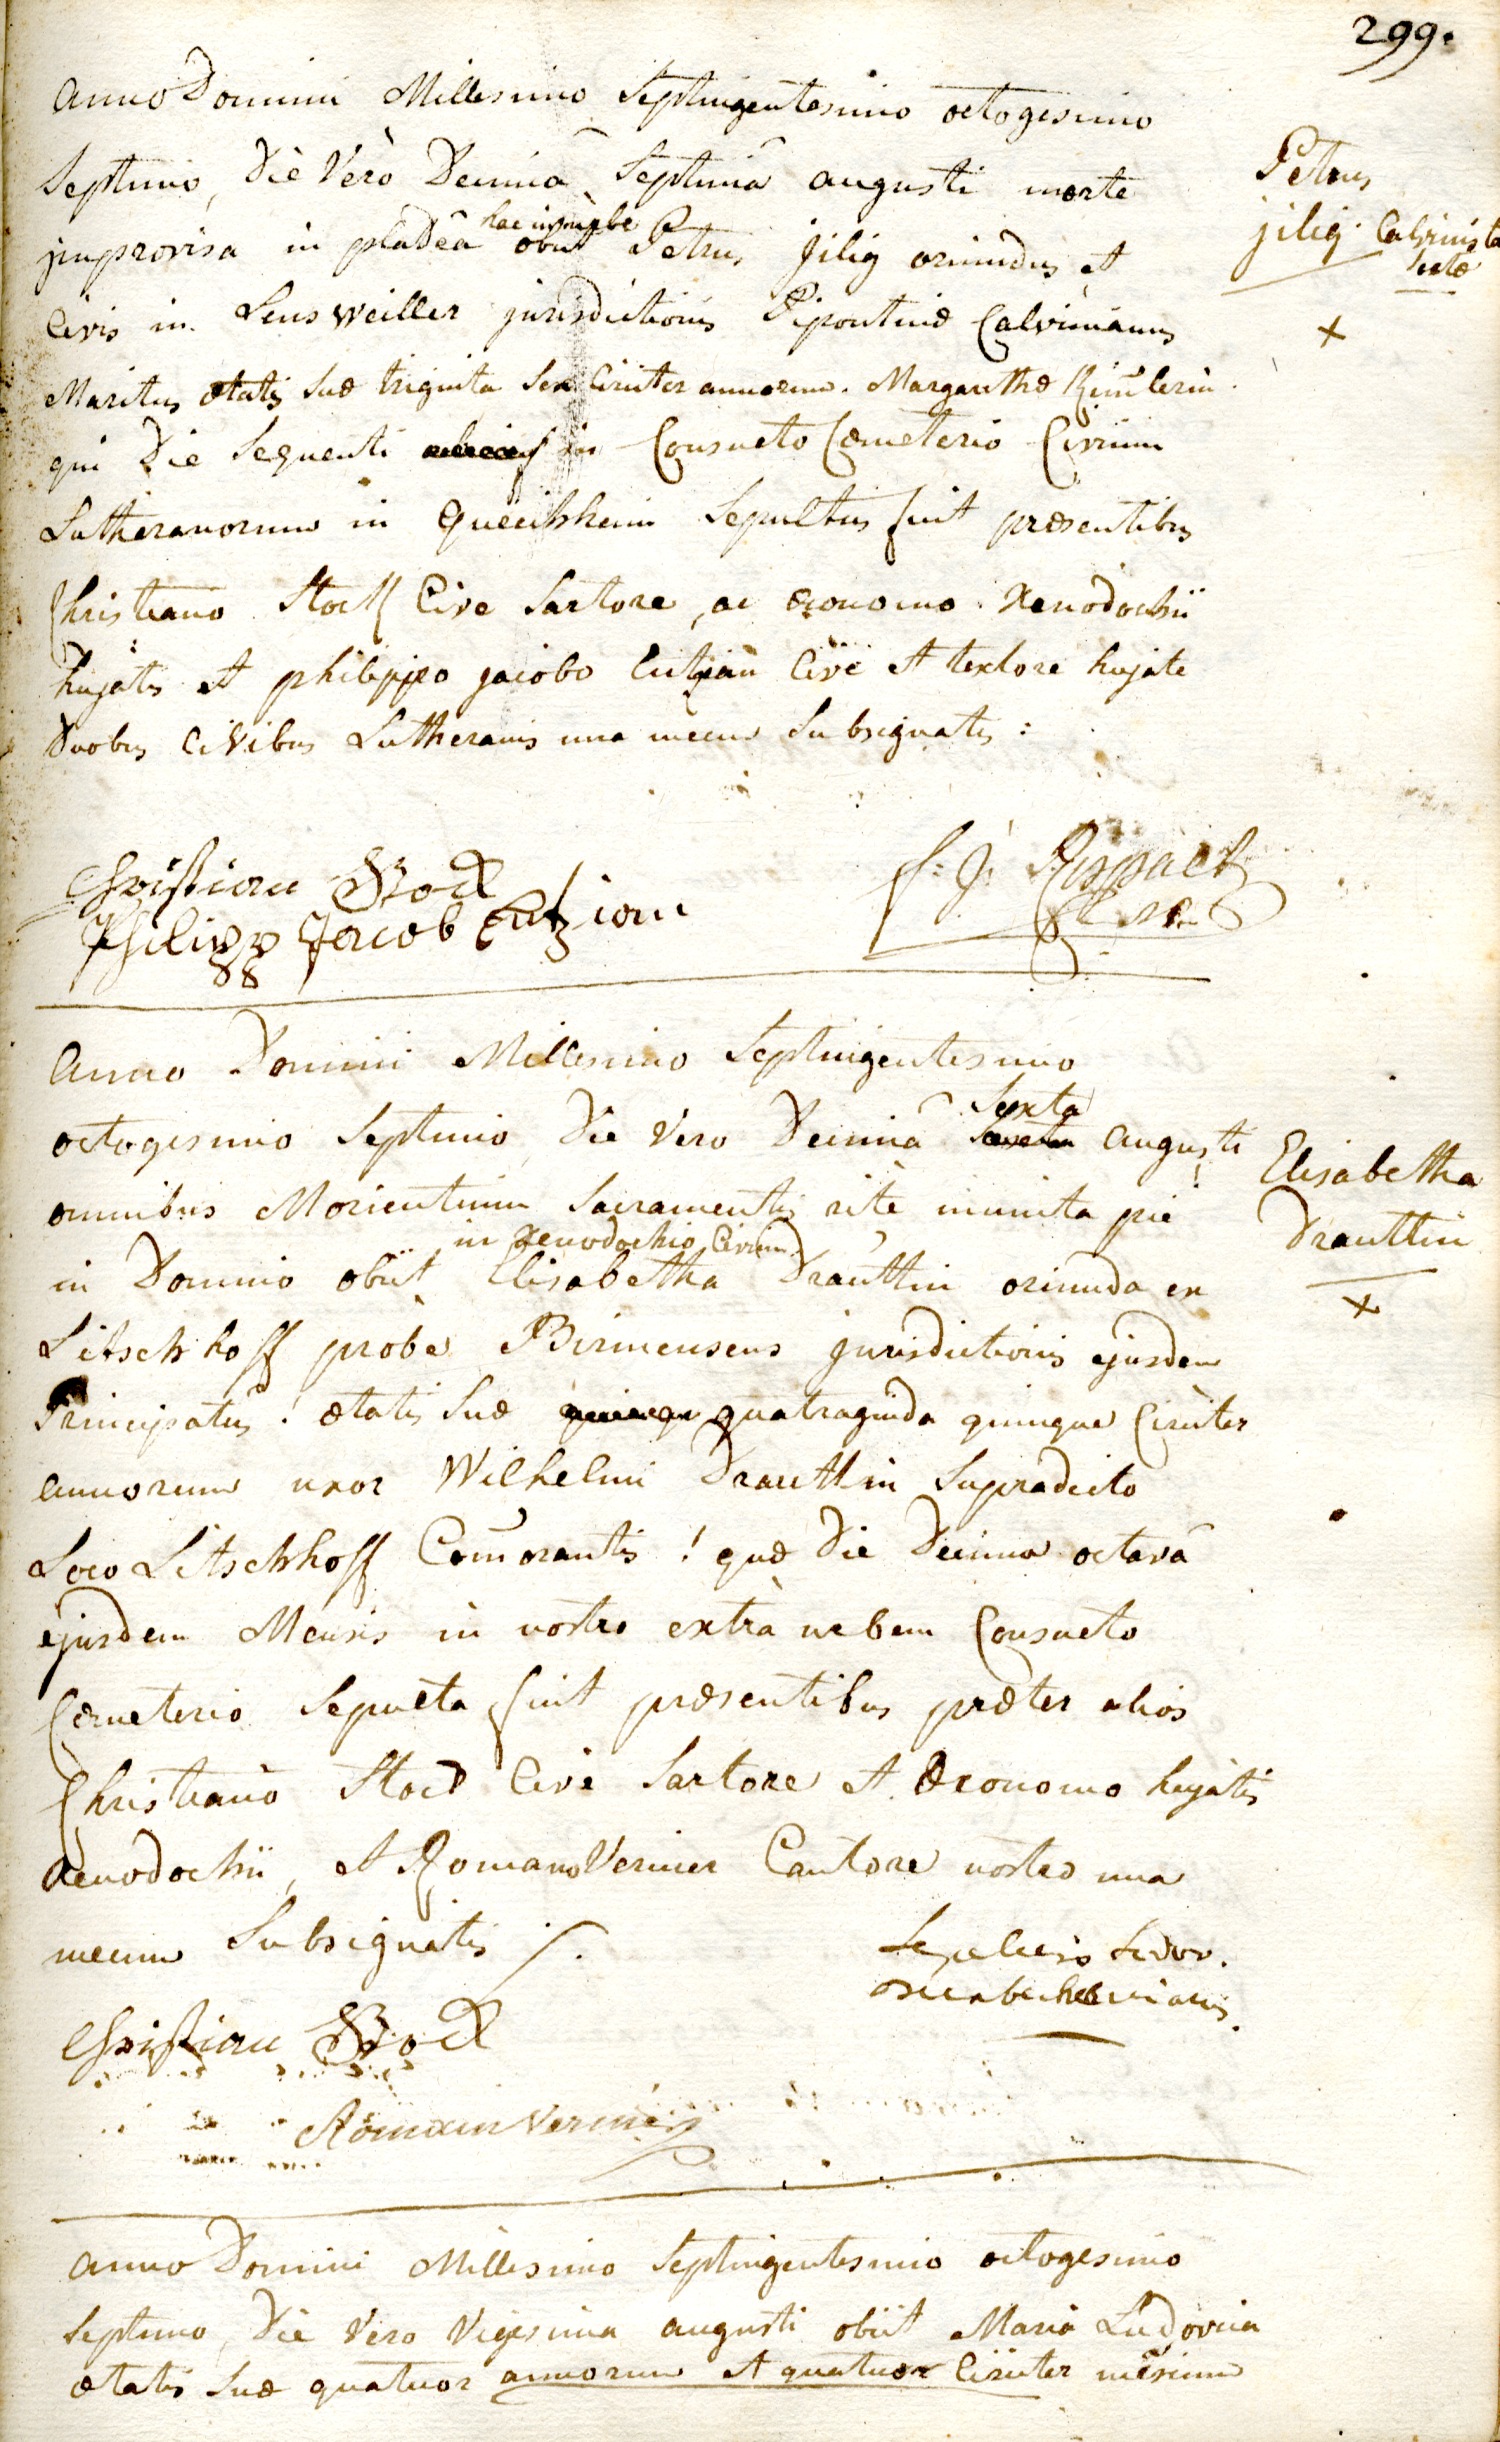 299.
Anno Domini Millesimo Septingentesimo octogesimo
Septimo, die Vero Decimâ Septimâ augusti morte
improvisa in plateâ hac in urbe obiit Petrus Jilig oriundus et
Civis in Lensweiller jurisdictionis Bipontinæ Calvinianus
Maritus ætatis suæ triginta sex Circiter annorum. Margarethæ
qui Die Sequenti in Consueto Cœmeterio Civium
Lutheranorum in Queichheim Sepultus fuit præsentibus
Christiano Stock Cive Sartore, ac œconomo Xenodochii
hujatis et philippo jacobo Cutzian Cive et textore hujate
Duobus Civibus Lutheranis una mecum Subsignatis:
Petrus
jilig Calvinista
+
Christian Stock
Philipp Jacob Cutzian
Anno Domini Millesimo Septingentesimo
octogesimo Septimo, Die Vero Decimâ Sexta augusti
omnibus Morientium Sacramentis ritè munita piè
in Domino obiit in Xenodochio Civium Elisabetha Drauttin oriunda ex
Litschhoff probe Birmensens jurisdictionis ejusdem
Principatus! ætatis Suæ quatraginda quinque Circiter
annorum uxor Wilhelmi Drauttin Supradicto
Loco Litschhoff Com̄orantis! quæ Die Decima octavâ
ejusdem Mensis in nostro extrà urbem Consueto
Cœmeterio Sepulta fuit præsentibus præter alios
Christiano Stock Cive Sartore et Œconomo hujatis
Xenodochii, et Romano Vermer Cantore nostro una
mecum Subsignatis /.
Elisabetha
Drauttin
+
Christian Stock
Romain Vermer
Anno Domini Millesimo Septingentesimo octogesimo
Septimo, Die Vero Vigesima augusti obiit Maria Ludovica
ætatis Suæ quatuor annorum et quatuor Circiter mēsium